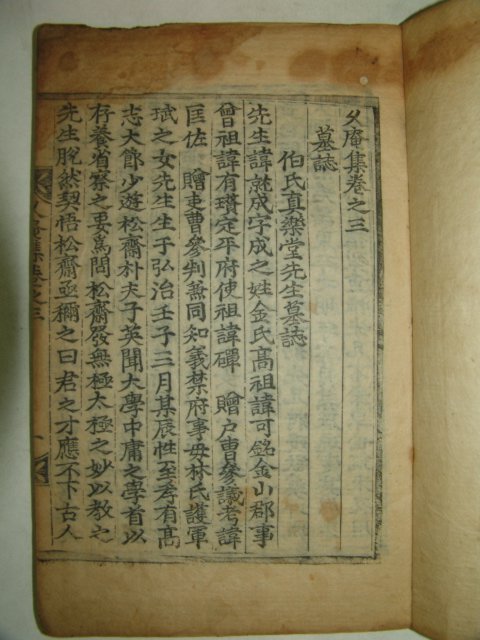 久庵集卷之三
墓誌
伯氏直樂堂先生墓誌
先生諱就成字成之姓金氏高祖諱可銘金山郡事
曾祖諱有瓚定平府使祖諱磾 贈户曹參議考諱
匡佐 贈吏曹參判兼同知義禁府事毋林氏護軍
珷之女先生生于弘治壬子三月某辰性至孝有髙
志大節少遊松齋朴夫子英聞大學中庸之學首以
存養省察之要爲問松齋發無極太極之妙以教之
先生脫然契悟松齋亟稱之曰君之才應不下古人